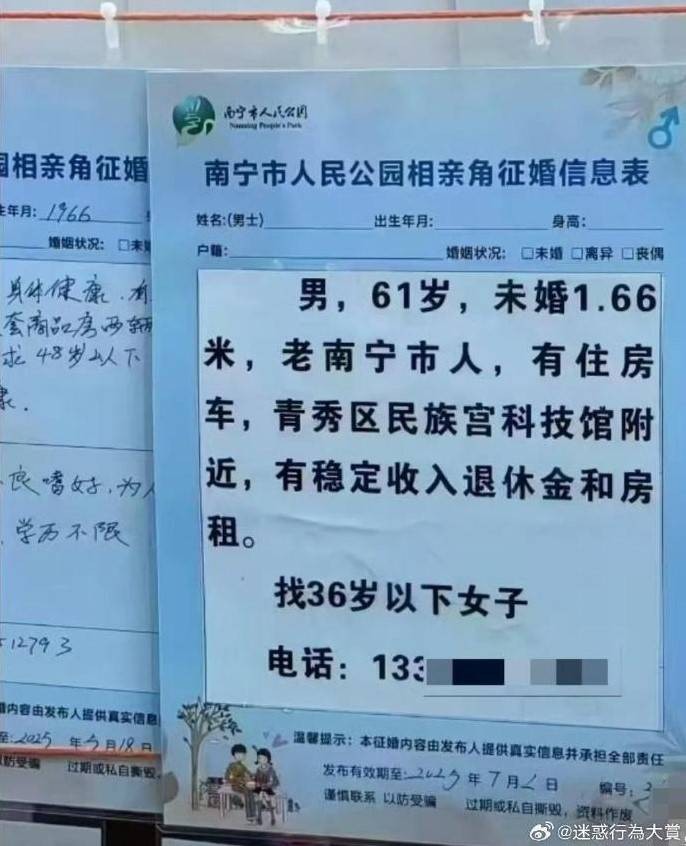 园相亲角征婚
生年月: 1966
婚姻状况: □未婚
身体健康.有
套商品房两辆
求48岁以下
康.
良嗜好,为人
学历不限
512793
婚内容由发布人提供真实信息
至: 2025 年5月18日
以防受骗 过期或私自撕毁,
南宁市人民公园
Nanning People's Park
南宁市人民公园相亲角征婚信息表
姓名:(男士) 出生年月: 身高:
户籍: 婚姻状况: □未婚 □离异 □丧偶
男，61岁，未婚1.66
米，老南宁市人，有住房
车，青秀区民族宫科技馆附
近，有稳定收入退休金和房
租。
找36岁以下女子
电话：133
温馨提示：本征婚内容由发布人提供真实信息并承担全部责任
发布有效期至:2025年7月2日 编号:
谨慎联系 以防受骗 过期或私自撕毁，资料作废
@迷惑行為大賞